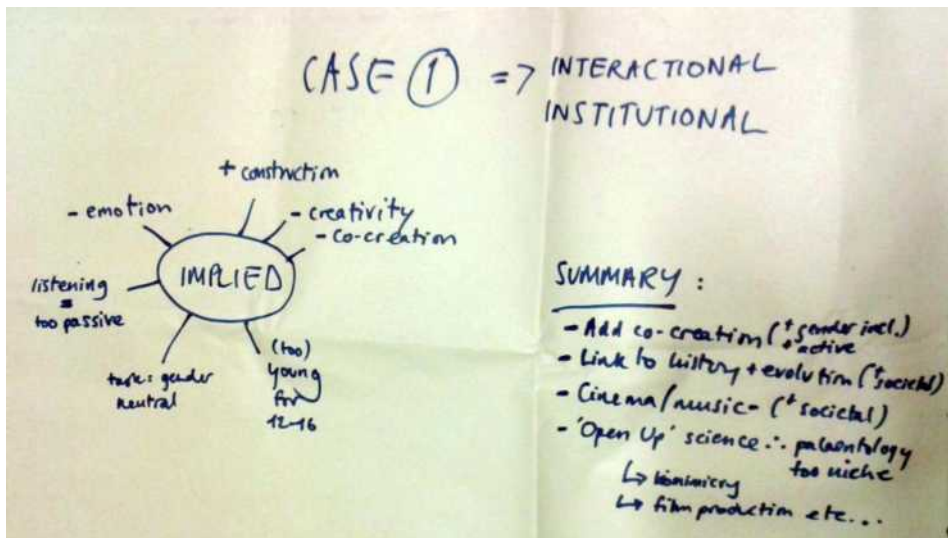 CASE 1 => INTERACTIONAL
INSTITUTIONAL
+ construction
- emotion
- creativity
- co-creation
IMPLIED
listening
=
too passive
task: gender
neutral
(too)
young
for
12-16
SUMMARY :
- Add co-creation (+ gender incl.)
+ active
- Link to history + evolution (+ societal)
- Cinema/music - (+ societal)
- 'Open Up' science ∴ palaentology
too niche
↳ biomimicry
↳ film production etc...